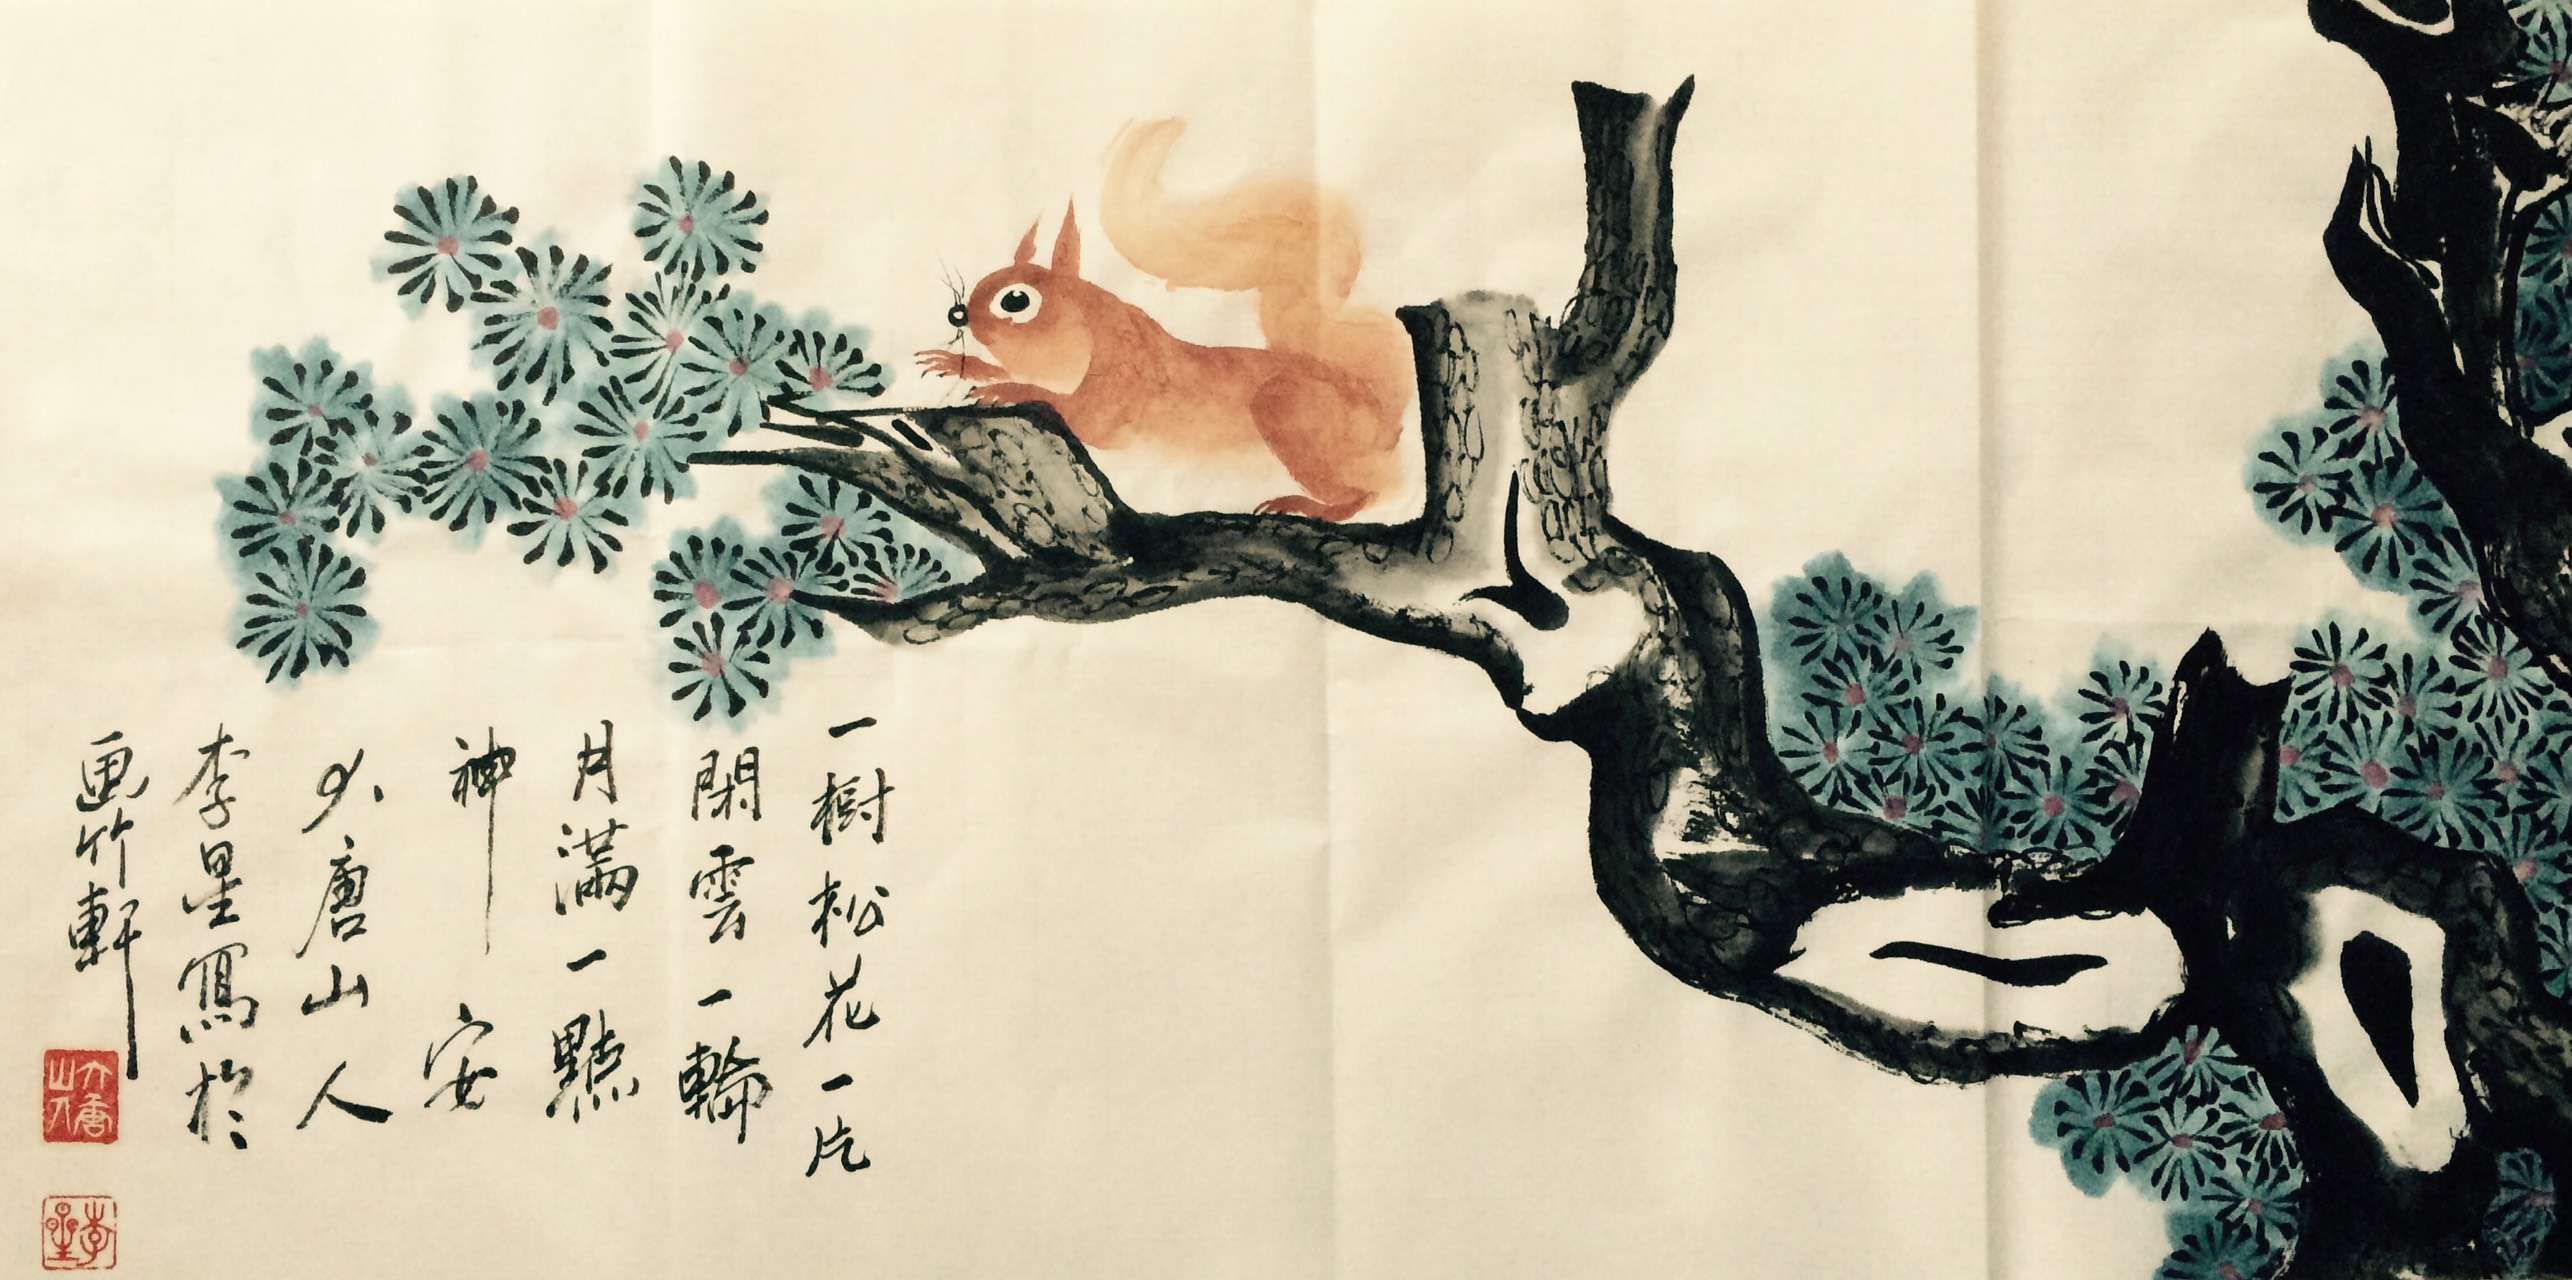 一樹松花一片
閑雲一輪
月滿一點
神安
大唐山人
李星寫於
画竹軒
大唐山人
李星